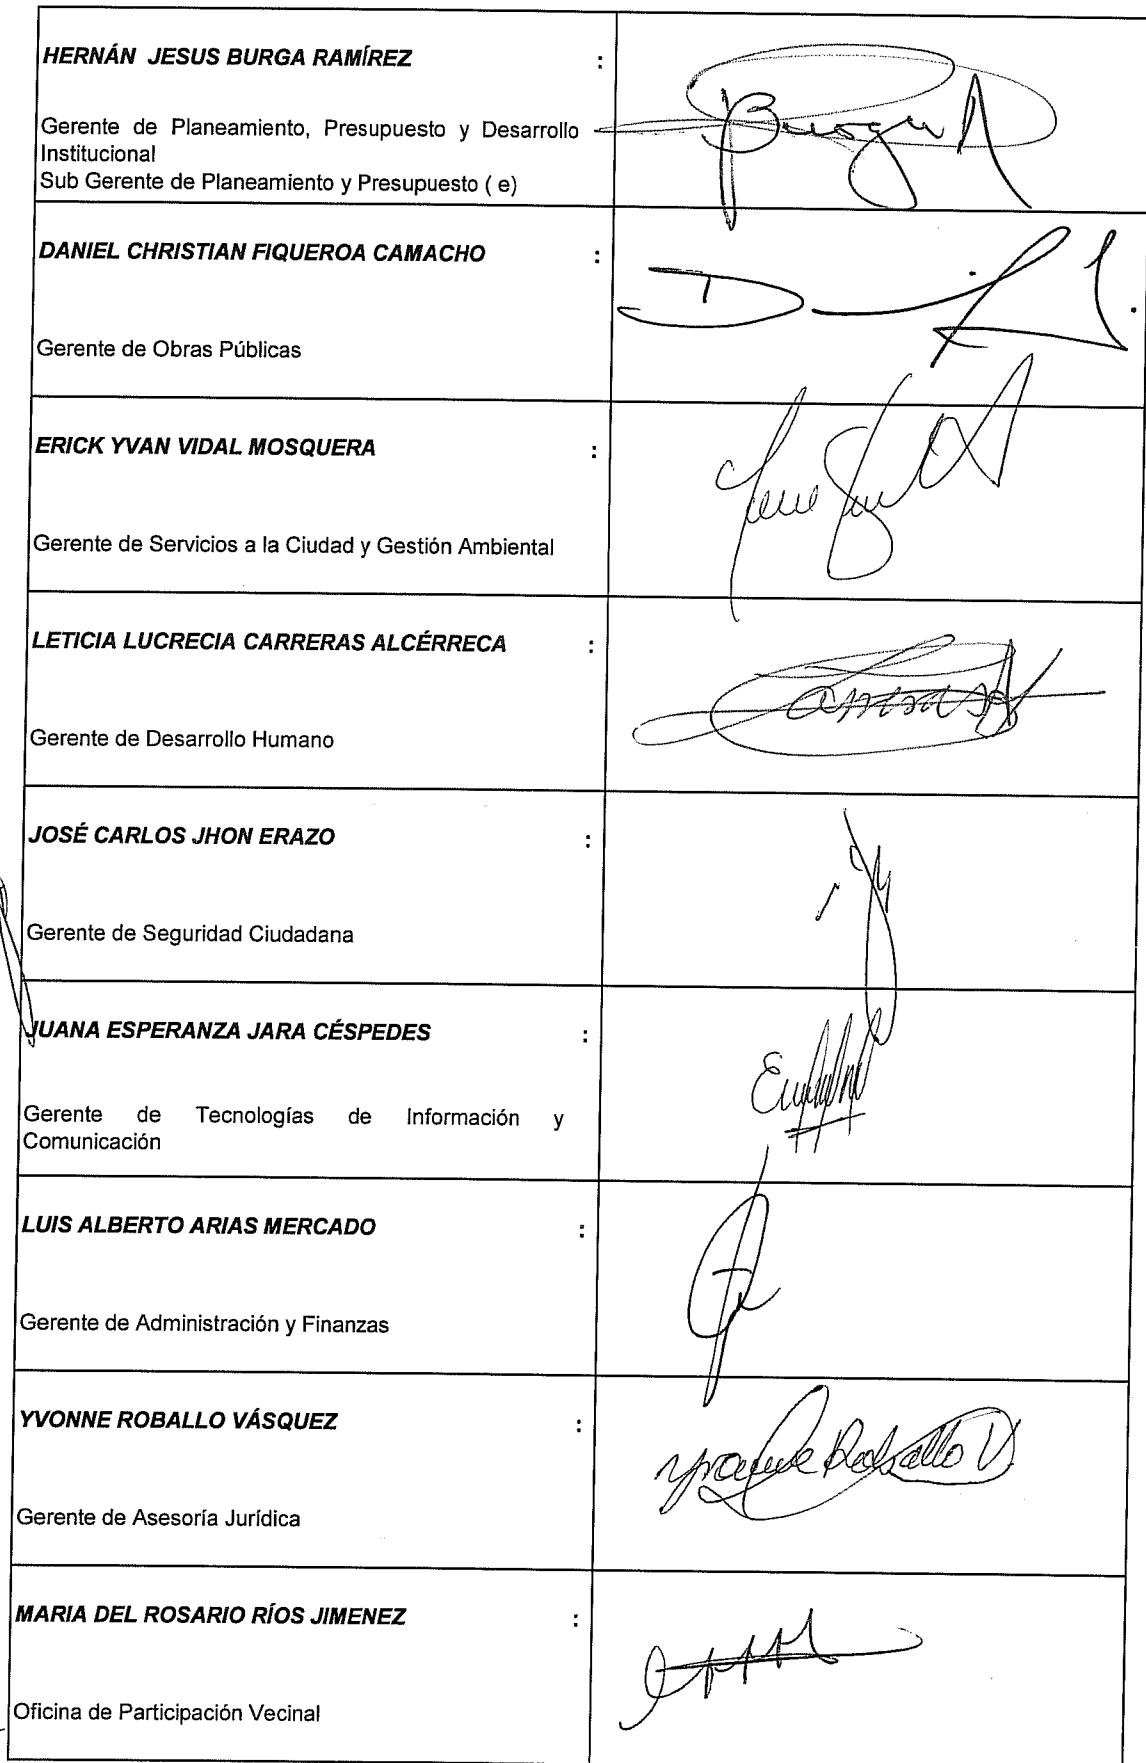 HERNÁN JESUS BURGA RAMÍREZ :
Gerente de Planeamiento, Presupuesto y Desarrollo
Institucional
Sub Gerente de Planeamiento y Presupuesto ( e)
DANIEL CHRISTIAN FIQUEROA CAMACHO :
Gerente de Obras Públicas
ERICK YVAN VIDAL MOSQUERA :
Gerente de Servicios a la Ciudad y Gestión Ambiental
LETICIA LUCRECIA CARRERAS ALCÉRRECA :
Gerente de Desarrollo Humano
JOSÉ CARLOS JHON ERAZO :
Gerente de Seguridad Ciudadana
JUANA ESPERANZA JARA CÉSPEDES :
Gerente de Tecnologías de Información y
Comunicación
LUIS ALBERTO ARIAS MERCADO :
Gerente de Administración y Finanzas
YVONNE ROBALLO VÁSQUEZ :
Yvonne Roballo V
Gerente de Asesoría Jurídica
MARIA DEL ROSARIO RÍOS JIMENEZ :
Oficina de Participación Vecinal